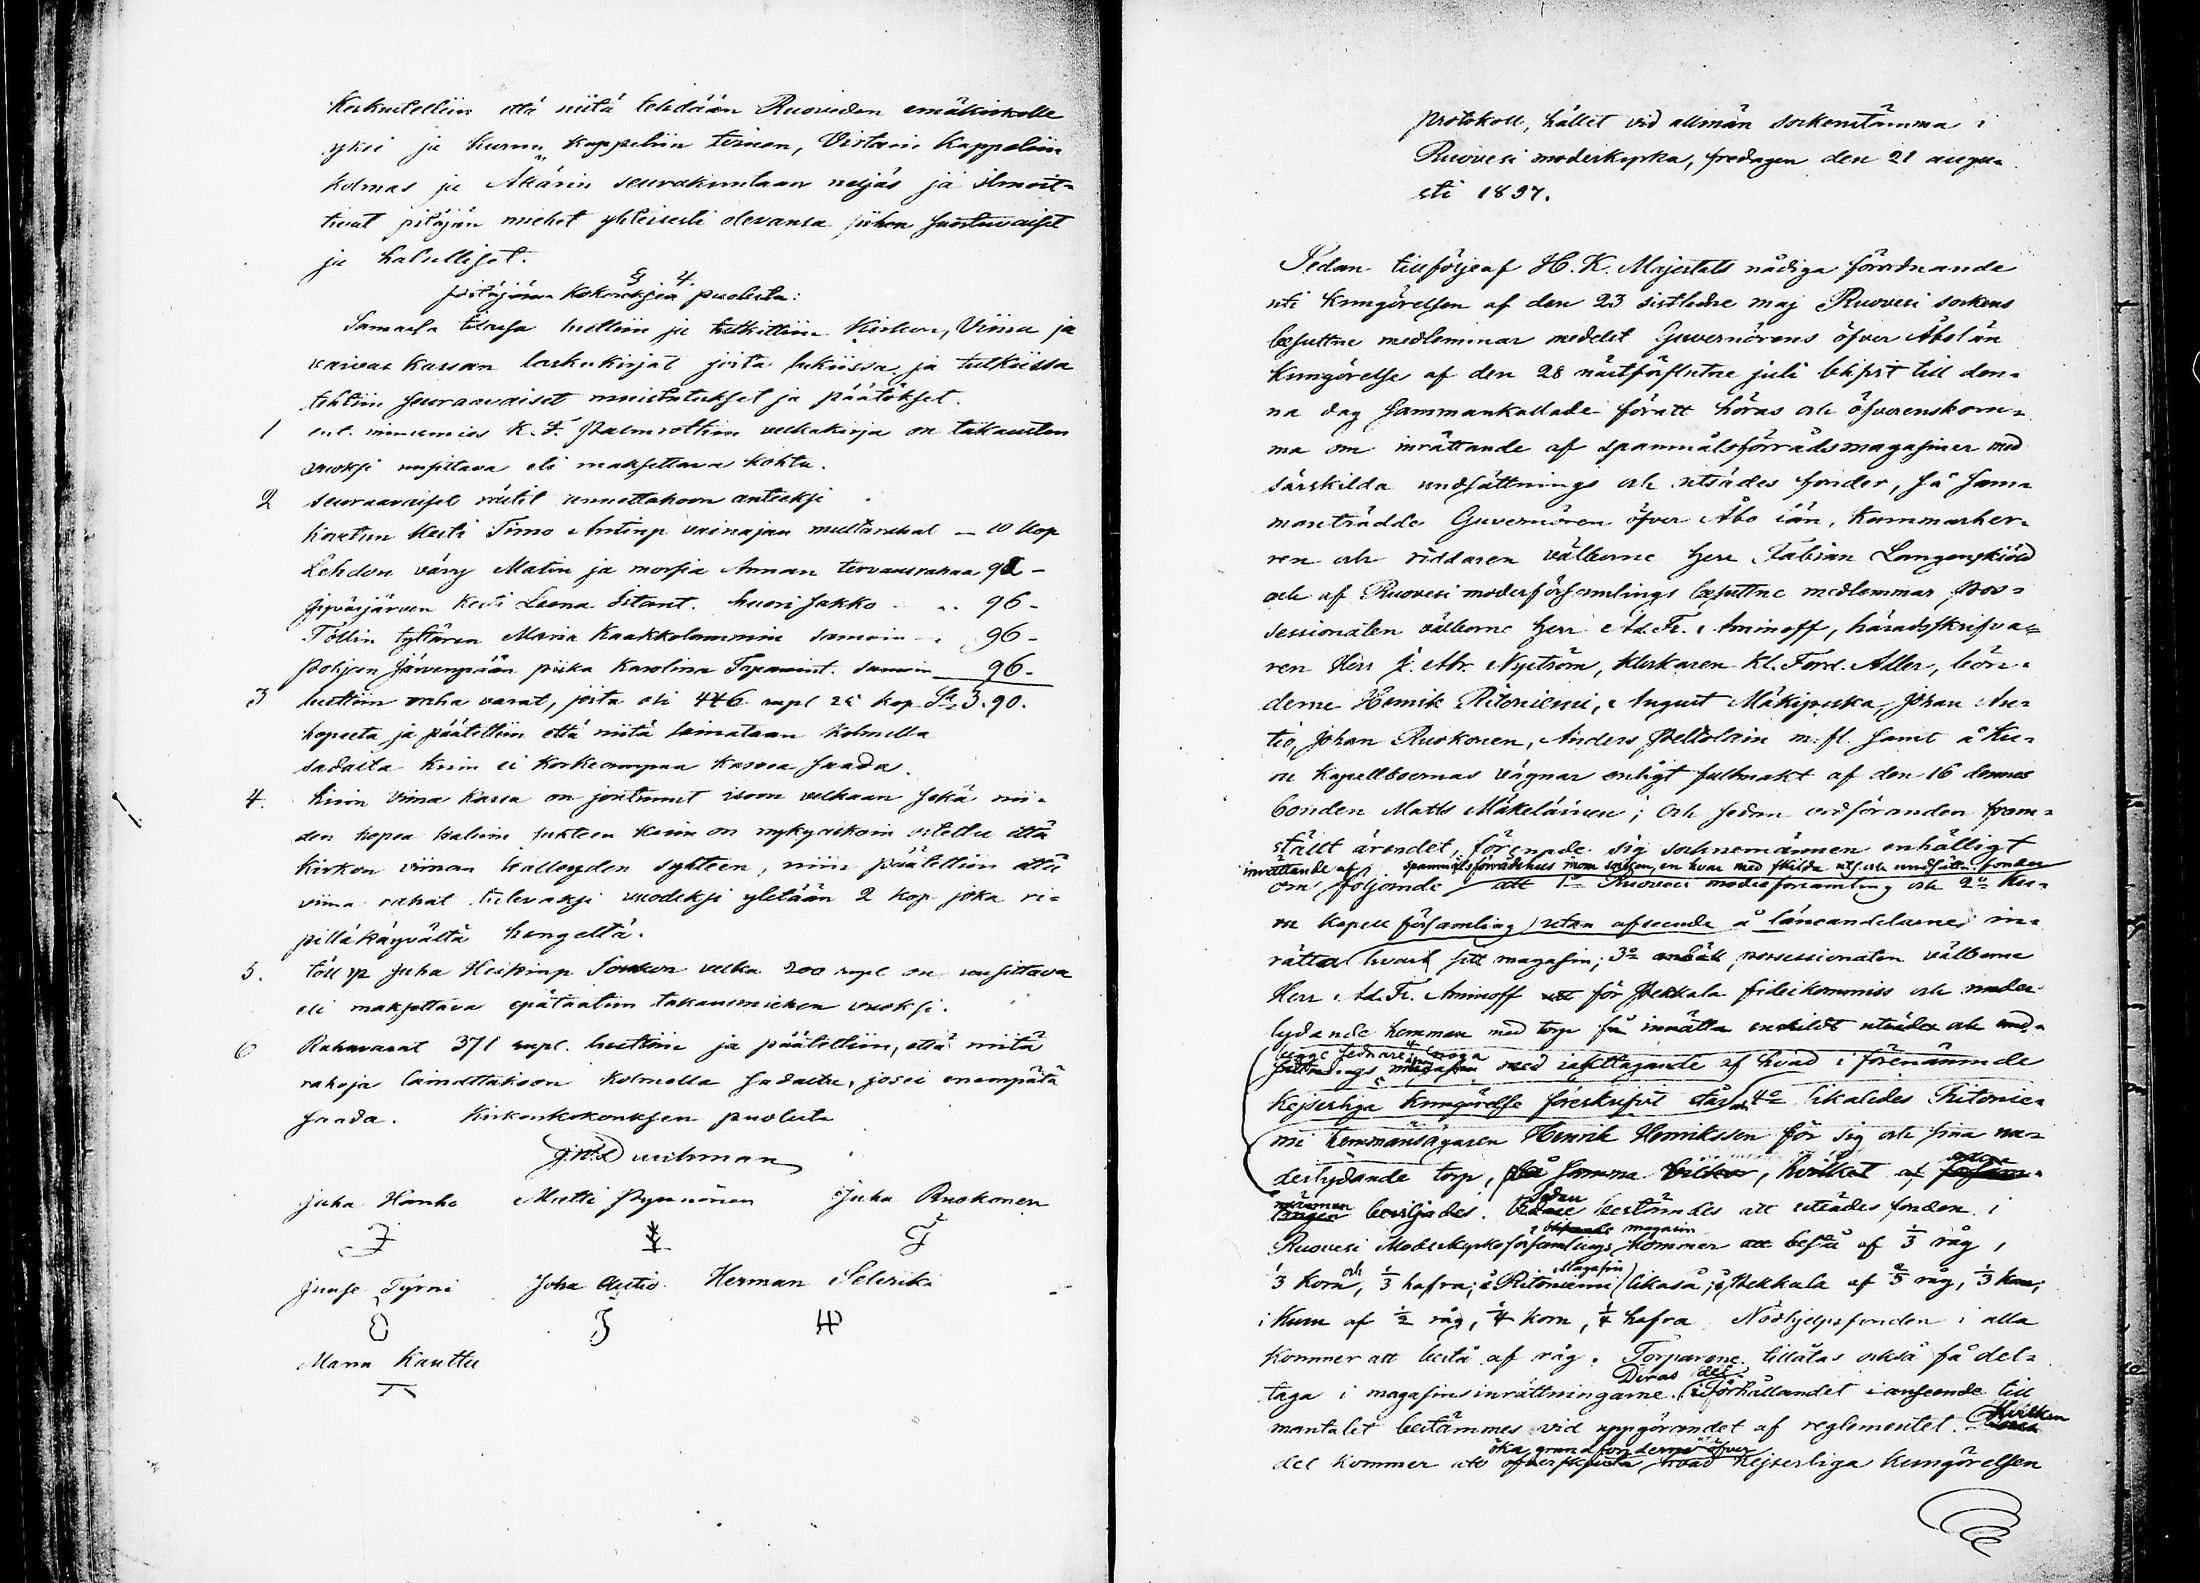 Keskusteltiin että niitä tehdään Ruoveden emäkirkolle
yksi ja Kurun Kappeliin toinen, Virtain Kappeliin
kolmas ja Ätsärin seurakuntaan neljäs ja ilmoit-
tivat pitäjän miehet yhteisesti olevansa siihen suostuvaiset
ja halulliset.
§ 4.
pitäjän kokouksen puolesta:
Samassa tilassa luettiin ja tutkittiin Kirkon, Viina ja
vaivas kassan laskukirjat joita lukiissa ja tutkiissa
tehtiin seuraavaiset muistutukset ja päätökset.
1 ent. nimismies K. F. Palmrothin velkakirja on takausten
vuoksi uusittava eli maksettava kohta.
2 seuraavaiset rästit annettakoon anteeksi
Kosetun Matti Timo Antinp vainajan multarahat — 10 kop
Lehdon vävy Matin ja morsia Annan tervausrahaa 92 -
Pyväsjärven Leena Istant. huori sakko 96 -
Töllin tyttären Maria Kaakkolammin samoin 96 -
Pohjan Järvenpään piika Karolina Tapanint. samoin 96 -
3 luettiin raha varat, joita oli 446 rupl 25 kop Sa 3.90.
hopeeta ja päätettiin että niitä lainataan kolmella
sadasta kuin ei korkeampaa kasvoa saada.
4. kuin viina kassa on joutunut isoon velkaan sekä nii-
den hopea kalun suhteen kuin on nykyaikoin ostettu että
kirkon viinan kalleuden syhteen, niin päätettiin että
viina rahat tulevaksi vuodeksi yletään 2 kop joka ri-
pilläkäypältä hengeltä.
5. töll vp Juha Heikinp velka 200 rupl on uusittava
eli maksettava epätaatun takausmiehen vuoksi.
6 Rahavarat 371 rupl. luettiin ja päätettiin, että niitä
rahoja lainattakoon kolmella sadasta, josei enempätä
saada. Kirkonkokouksen puolesta
Durchman
Juha Hanho Matti Pynnönen Juha Ruokonen
Juuse Tyrni Joha Autio Herman Selerikä
Manu Kauttu
Protokoll, hållet vid allmän sockenstämma i
Ruovesi moderkyrka, fredagen den 21 augu-
sti 1857.
Sedan tillföljeaf H. K. Majestäts nådiga förordnande
uti kungörelsen af den 23 sistledne maj Ruovesi sockens
besuttne medlemmar medelst Guvernörens öfver Åbo län
kungörelse af den 28 nästförflutne juli blifvit till den-
na dag sammankallade föratt höras och öfverenskom-
ma om inrättande af spannmålsförrådsmagasiner med
särskilda undsättnings och utsädes fonder, så sam-
manträdde Guvernören öfver Åbo län, Kammarher-
ren och riddaren välborne Herr Fabian Langenskiöld
och af Ruovesi moderförsamlings besuttne medlemmar, Pos-
sessionaten välborne Herr Ad. Fr. Aminoff, häradsskrifva-
ren Herr J. Abr. Nyström, klockaren Kl. Ferd. Adler, bön-
derne Henrik Ritoniemi, August Mäkipeska, Johan Au-
tio, Johan Ruokonen, Anders Peltolain m. fl. samt å Ku-
ru Kapellboernas vägnar enligt fullmakt af den 16 dennes
bonden Matts Mäkeläinen; och sedan ordföranden fram-
ställt ärendet, förenade sig socknemännen enhälligt
inrättande af spannmålsförrådshus inom socken, en hvar med skilda uts. och undsättn. fonder
om följande att 1o Ruovesi moderförsamling och 2o Ku-
ru Kapell församling utan afseende å länsandelarne in-
rätta hvart sitt magasin; 3o possessionaten välborne
Herr Ad. Fr. Aminoff för Pekkala fideikommiss och under
lydande hemman med torp få inrätta enskildt utsädes och und-
begge sednare
sättnings magasin med iakttagande af hvad i förenämnde
Kejserliga kungörelse föreskrifvit står, 4o likaledes Ritonie-
mi hemmansägaren Henrik Henriksson för sig och sina un-
derlydande torp, på samma vilkor, hvilket af
beviljades. Sedan bestämdes att utsädes fonden i
blifvande magasin
Ruovesi Moderkyrkoförsamlings kommer att bestå af 1/3 råg,
Magasin
1/3 korn, och 1/3 hafra; i Ritoniemi likaså; i Pekkala af 2/3 råg, 1/3 korn;
i Kuru af 1/2 råg, 1/4 korn, 1/4 hafra. Nödhjelpsfonden i alla
kommer att bestå af råg. Torparene tillåtas också få del-
Deras del
taga i magasinsinrättningarne. i förhållandet i anseende till
mantalet bestämmes vid uppgörandet af reglementet. Hvilken
öka grundfonderna öfver
del kommer att öfverskjuta hvad Kejserliga kungörelsen